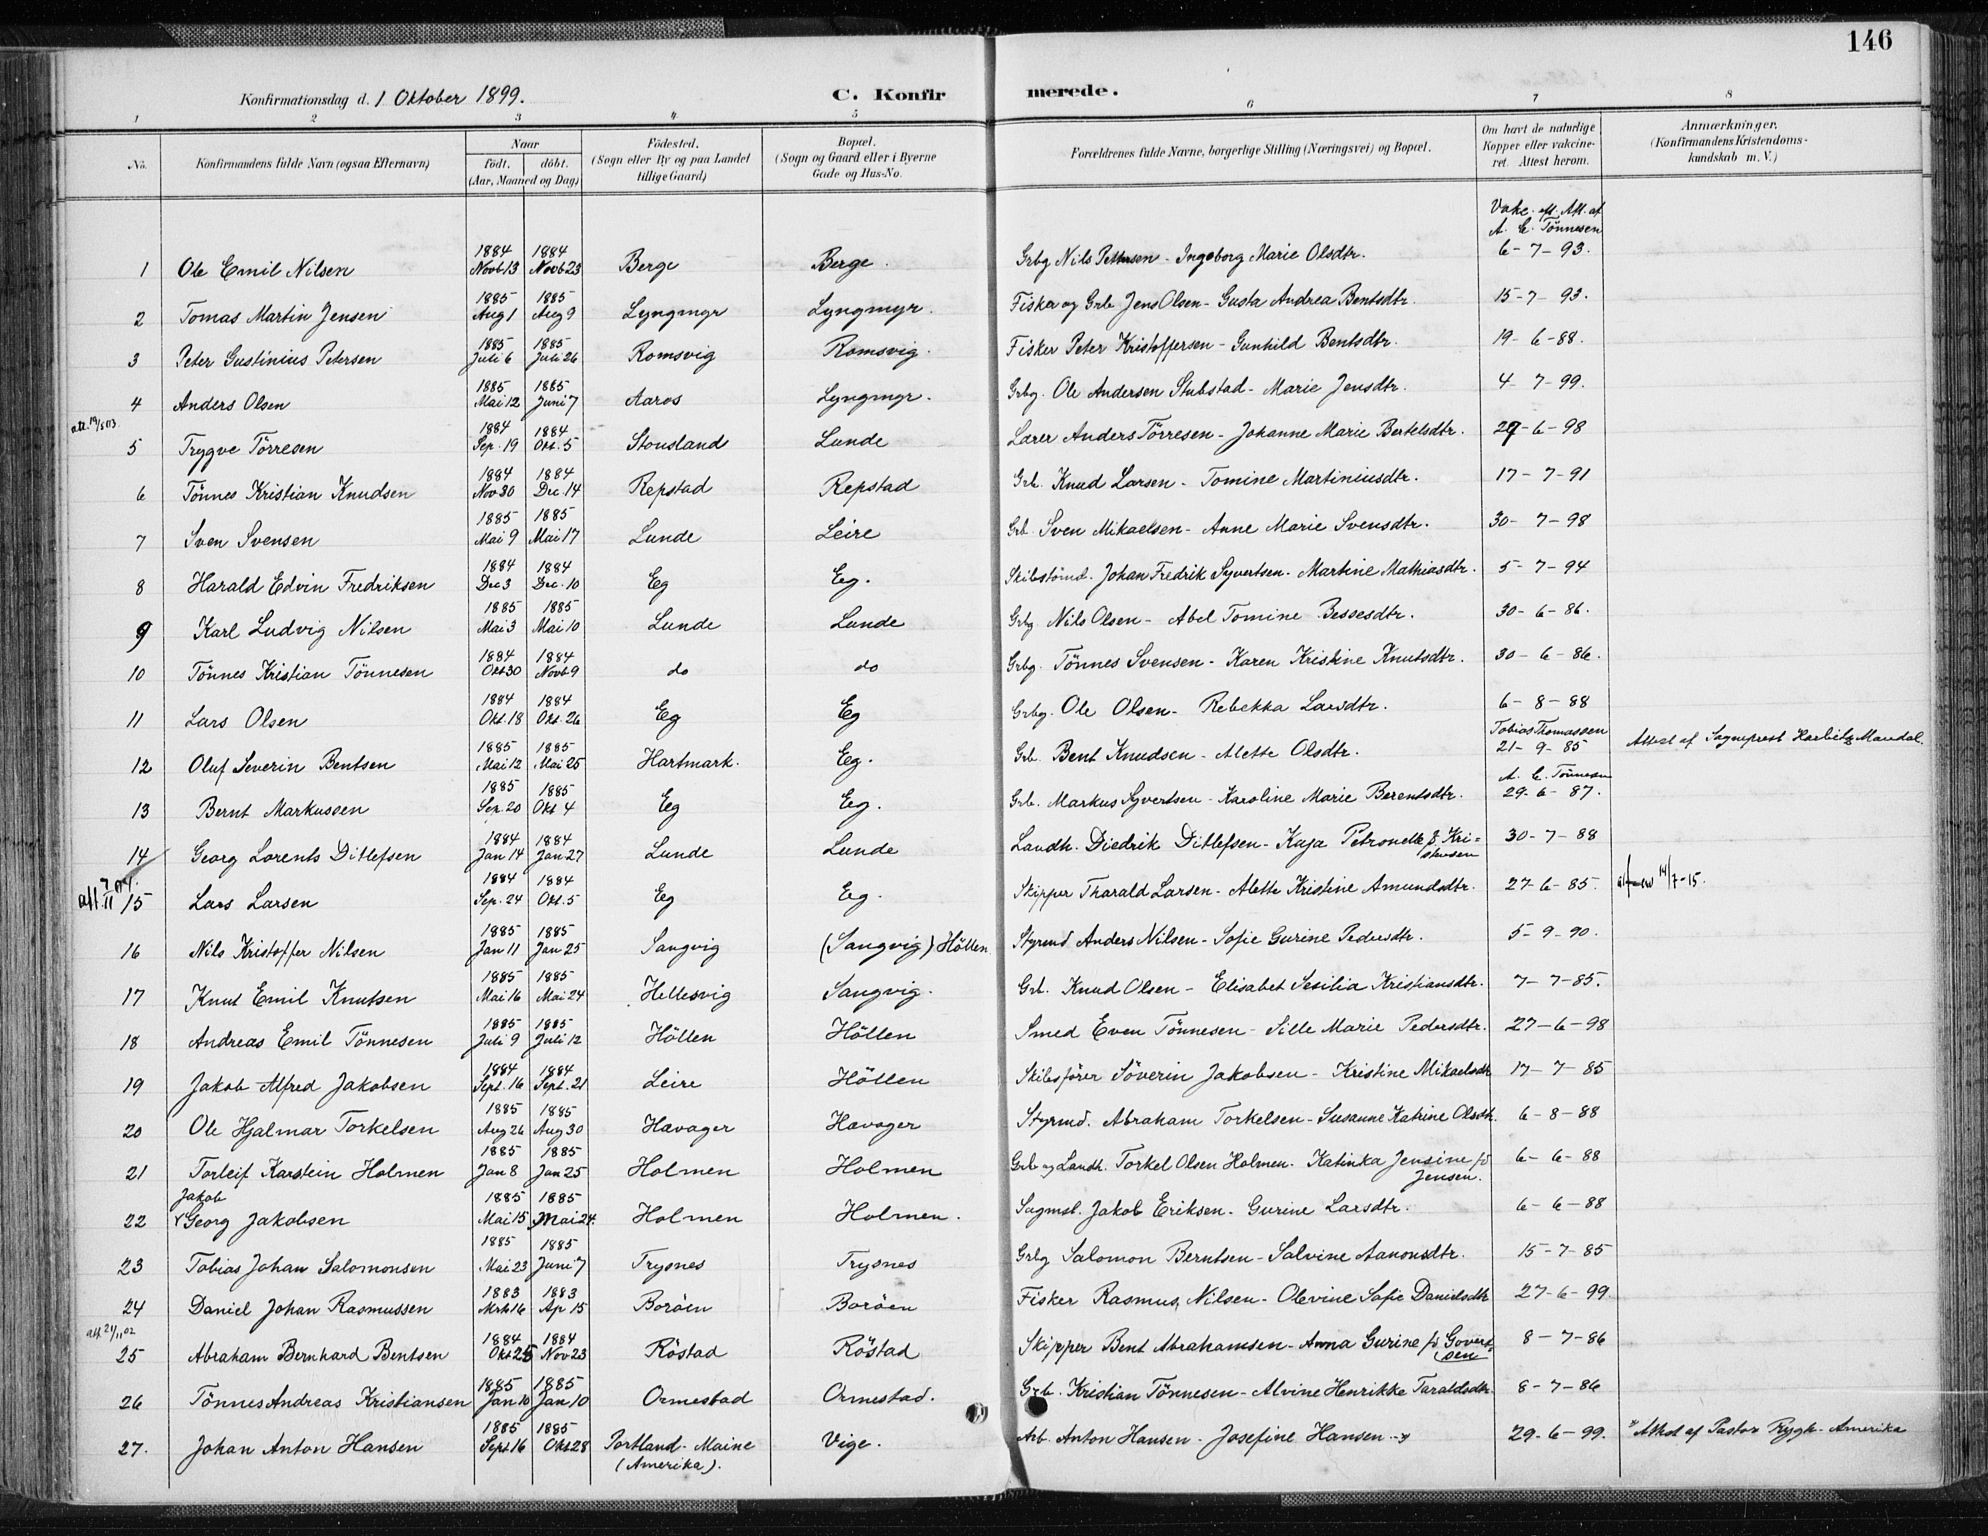 146
Konfirmationsdag d. 1 Oktober 1899. C. Konfirmerede.
1 2 3 4 5 6 7 8
No. Konfirmandens fulde Navn (ogsaa Efternavn) Naar født. døbt. (Aar, Maaned og Dag) Fødested. (Sogn eller By og paa Landet tillige Gaard) Bopæl. (Sogn og Gaard eller i Byerne Gade og Hus-No. Forældrenes fulde Navne, borgerlige Stilling (Næringsvei) og Bopæl. Om havt de naturlige Kopper eller vakcineret. Attest herom. Anmærkninger. (Konfirmandens Kristendomskundskab m. V.)
Vakc. eft. Att. af
A. C. Tönnesen
1 Ole Emil Nilsen 1884 Novb 13 1884 Novb 23 Berge Berge. Grbg Nils Pettersen - Ingeborg Marie Olsdtr. 6-7-93.
2 Tomas Martin Jensen 1885 Aug 1 1885 Aug 9 Lyngmyr Lyngmyr. Fisker og Grb. Jens Olsen - Gusta Andrea Bentsdtr. 15-7-93.
3 Peter Gustinius Petersen 1885 Juli 6 1885 Juli 26 Romsvig Romsvig. Fisker Peter Kristoffersen - Gunhild Bentsdtr. 19-6-88.
4 Anders Olsen 1885 Mai 12 1885 Juni 7 Aaros Lyngmyr. Grbg. Ole Andersen Stubstad - Marie Jensdtr. 4-7-99.
5 Trygve Törresen 1884 Sep. 19 1884 Okt. 5 Stousland Lunde Lærer Anders Törresen - Johanne Marie Bertelsdtr. 29-6-98
6 Tönnes Kristian Knudsen 1884 Nov 30 1884 Dec. 14 Repstad Repstad Grb. Knud Larsen - Tomine Martiniusdtr. 17-7-91
7 Sven Svensen 1885 Mai 9 1885 Mai 17 Lunde Leire Grb. Sven Mikaelsen - Anne Marie Svensdtr. 30-7-98
8 Harald Edvin Fredriksen 1884 Dec 3 1884 Dec. 10 Eg Eg. Skibstömd. Johan Fredrik Syvertsen - Martine Mathiasdtr. 5-7-94
9 Karl Ludvig Nilsen 1885 Mai 3 1885 Mai 10 Lunde Lunde Grbg. Nils Olsen - Abel Tomine Bessesdtr. 30-6-86.
10 Tönnes Kristian Tönnesen 1884 Okt 30 1884 Novb 9 do do Grbg. Tönnes Svensen - Karen Kristine Knutsdtr. 30-6-86.
11 Lars Olsen 1884 Okt. 18 1884 Okt. 26 Eg Eg Grbg. Ole Olsen - Rebekka Larsdtr. 6-8-88
12 Oluf Severin Bentsen 1885 Mai 12 1885 Mai 25 Hartmark. Eg. Grb. Bent Knudsen - Alette Olsdtr. Tobias Thomassen 21-9-85 Attest af Sogneprest Harbitz Mandal.
13 Bernt Markussen 1885 Sep. 20 1885 Okt 4 Eg Eg. Grb. Markus Syvertsen - Karoline Marie Berentsdtr. A. C. Tönnesen 29-6-87.
14 Georg Lorents Ditlefsen 1884 Jan 14 1884 Jan 27 Lunde Lunde Landh. Diedrik Ditlefsen - Kaja Petronelle f. Kristensen 30-7-88
15 Lars Larsen 1884 Sep. 24 1884 Okt. 5 Eg Eg. Skipper Tharald Larsen - Alette Kristine Amundsdtr. 27-6-85. 14/7-15.
16 Nils Kristoffer Nilsen 1885 Jan 11 1885 Jan 25 Sangvig (Sangvig) Höllen Styrmd Anders Nilsen - Sofie Gurine Pedersdtr. 5-9-90.
17 Knut Emil Knutsen 1885 Mai 16 1885 Mai 24 Hellesvig Sangvig. Grb. Knud Olsen - Elisabet Sesilia Kristiansdtr. 7-7-85.
18 Andreas Emil Tönnesen 1885 Juli 9 1885 Juli 12 Höllen Höllen Smed Even Tönnesen - Sille Marie Pedersdtr. 27-6-98
19 Jakob Alfred Jakobsen 1884 Sept. 16 1884 Sept. 21 Leire Höllen Skibsförer Söverin Jakobsen - Kristine Mikaelsdtr 17-7-85
20 Ole Hjalmar Torkelsen 1885 Aug 26 1885 Aug 30 Havager Havager Styrmd. Abraham Torkelsen - Susanne Katrine Olsdtr. 6-8-88
21 Torleif Karstein Holmen 1885 Jan 8 1885 Jan 25 Holmen Holmen Grb og Landh. Torkel Olsen Holmen - Katinka Jensine f. Jensen. 6-6-88
22 Jakob Georg Jakobsen 1885 Mai 15 1885 Mai 24. Holmen Holmen. Sagmst. Jakob Eriksen - Gurine Larsdtr. 6-6-88
23 Tobias Johan Salomonsen 1885 Mai 23 1885 Juni 7 Trysnes Trysnes Grbg Salomon Berntsen - Salvine Aanonsdtr. 15-7-85
24 Daniel Johan Rasmussen 1883 Mrts 16 1883 Ap 15 Boröen Boröen Fisker Rasmus Nilsen - Olevine Sofie Danielsdtr 27-6-99.
25 Abraham Bernhard Bentsen 1884 Okt 25 1884 Nov 23 Röstad Röstad Skipper Bent Abrahamsen - Anna Gurine f. Govertsen 8-7-86
26 Tönnes Andreas Kristiansen 1885 Jan 10 1885 Jan 10 Ormestad Ormestad. Grb. Kristian Tönnesen - Alvine Henrikke Taraldsdtr. 8-7-86
27. Johan Anton Hansen 1885 Sept 16 1885 Okt 28 Portland - Maine (Amerika). Vige. Arb. Anton Hansen - Josefine Hansen 29-6-99. Attest af Pastor Rygh - Amerika